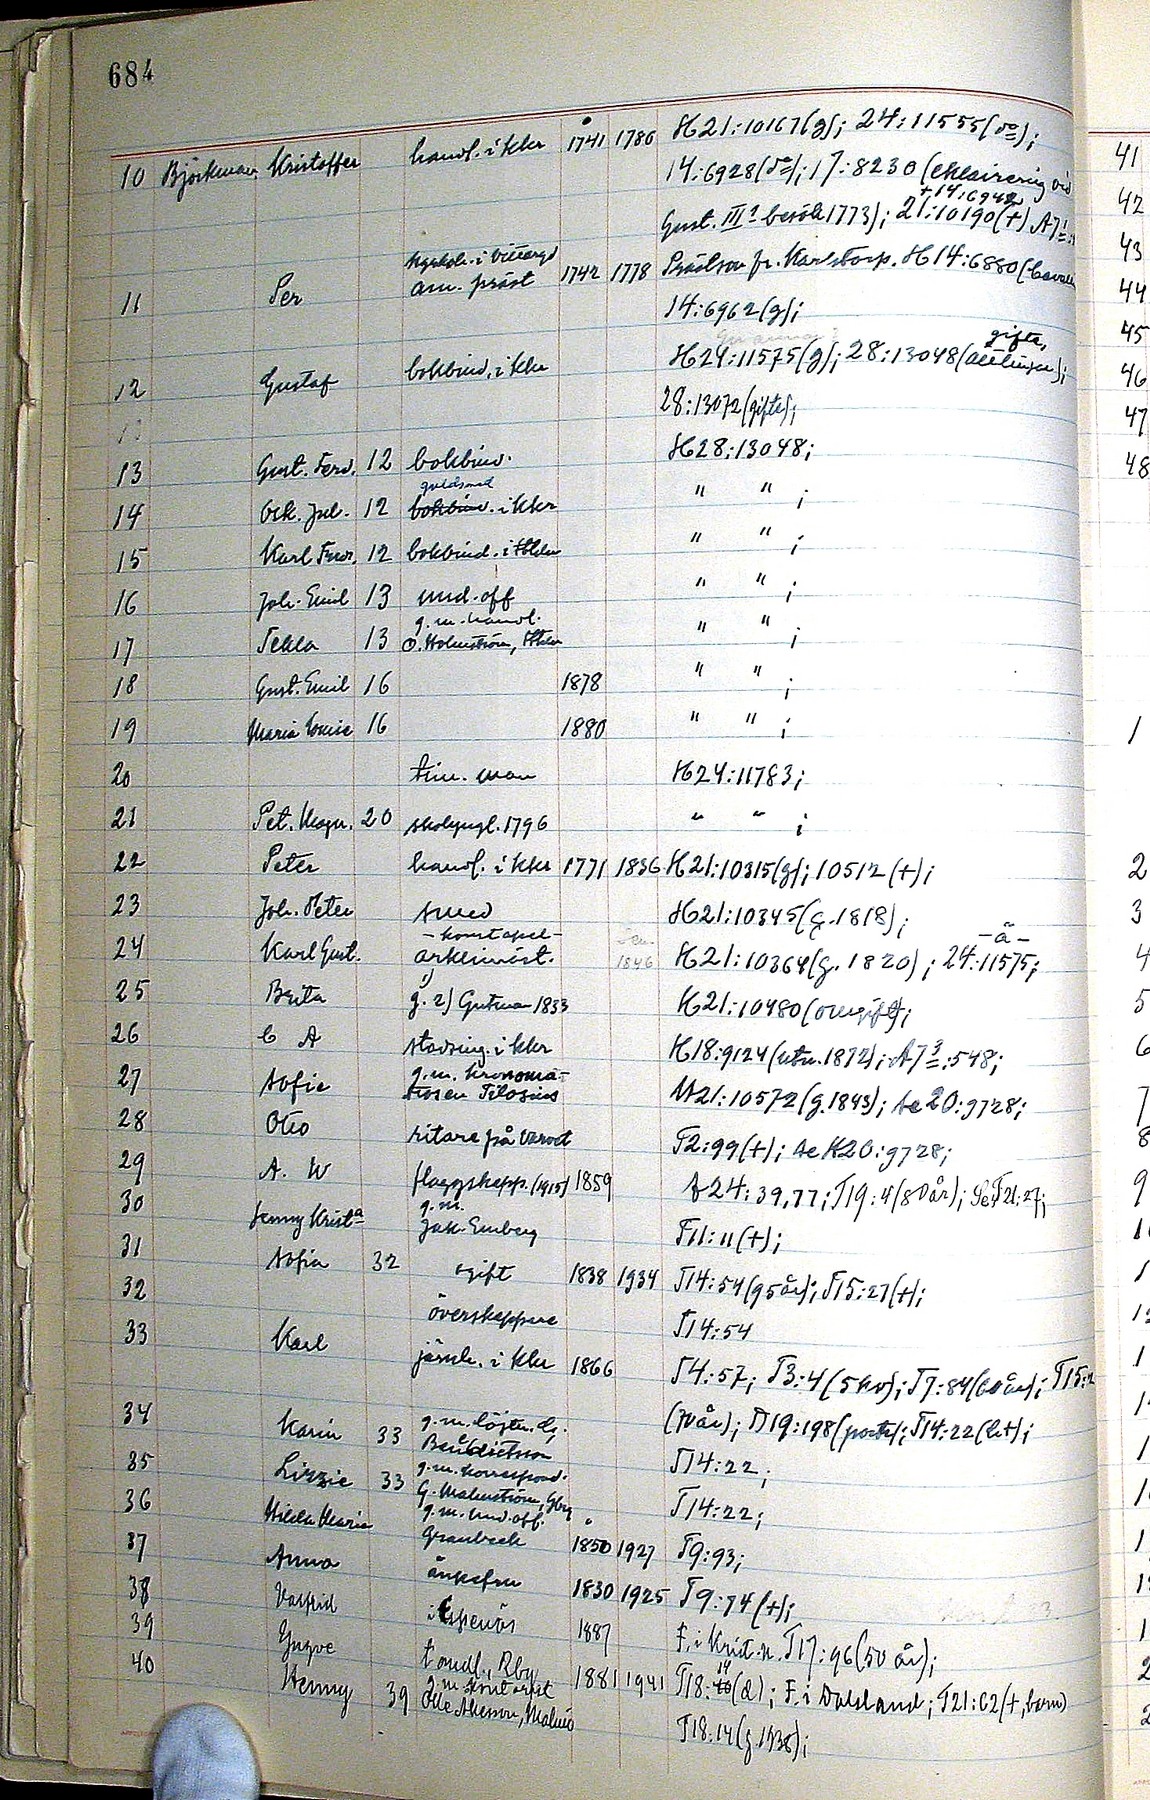 684
10 Björkman, Kristoffer handl. i kkr 1741 1786 H21:10167(g); 24:11555(do);
14:6928(do); 17:8230 (eklairering vid
+14:6942
Gust. III:s besök 1773); 21:10190(+) A7
kyrkoh. i
11 Per am. präst 1742 1778 Prästson fr. Karlstorp. H14:6880
14:6962(g);
gifta,
12 Gustaf bokbind. i kkr H24:11575(g); 28:13048(ättlingar);
28:13072(gifte);
13 Gust. Ferd. 12 bokbind. H28:13048;
guldsmed
14 Osk. Jul. 12 bokbind. i kkr " " ;
15 Karl Fred. 12 bokbind. i Sthlm " " ;
16 Joh. Emil 13 und.off " " ;
g.m. handl.
17 Tekla 13 O. Holmström, Sthlm " " ;
18 Gust. Emil 16 1878 " " ;
19 Maria Lovisa 16 1880 " " ;
20 tim.man H24:11783;
21 Pet. Magn. 20 skolyngl. 1796 " " ;
22 Peter handl. i kkr 1771 1836 H21:10315(g); 10512(+);
23 Joh. Peter smed H21:10345(g.1818);
-konstapel- -ä-
24 Karl Gust. arklimäst. 1846 H21:10364(g. 1820); 24:11575;
1)
25 Brita g. 2) Gutman 1833 H21:10480(omgift);
26 C A stadsing. i kkr H18:9124(utn.1872); A7 3:548;
27 Sofie g.m. kronoma-
trosen Filosius H21:10572(g.1843); Ae20:9728;
28 Otto ritare på varvet T2:99(+); Ae H20:9728;
29 A. W flaggskepp. (1915) 1859 A24:39,77; T19:4(80år); Se T21:27;
30 Jenny Krist:a g.m.
Jak. Enberg T11:11(+);
31 Sofia 32 gift 1838 1934 T14:54(95år); T15:27(+);
32 överskeppare T14:54
33 Karl järnh. i kkr 1866 T4:57; T3:4(50år); T7:84(60år); T15:2
(70år); T19:198(portr); T14:22(h+);
34 Karin 33 g.m. löjtn. Lg.
Benedictsson T14:22;
35 Lizzie 33 g.m. korrespond.
G. Malmström, Gbg T14:22;
36 Hilda Maria g.m. und.off.
Granbeck 1850 1927 T9:93;
37 Anna änkefru 1830 1925 T9:74(+);
38 Valfrid i Espenäs 1887 F. i Krist.n. T17:96(50år);
39 Yngve tandl., Rby 1881 1941 T18:14(d); F. i Dalsland; T21:62(+, barn)
40 Henny 39 g.m. kontorist
Olle Åkesson, Malmö T18:14(g.1938);
41
42
43
44
45
46
47
48
1
2
3
4
5
6
7
8
9